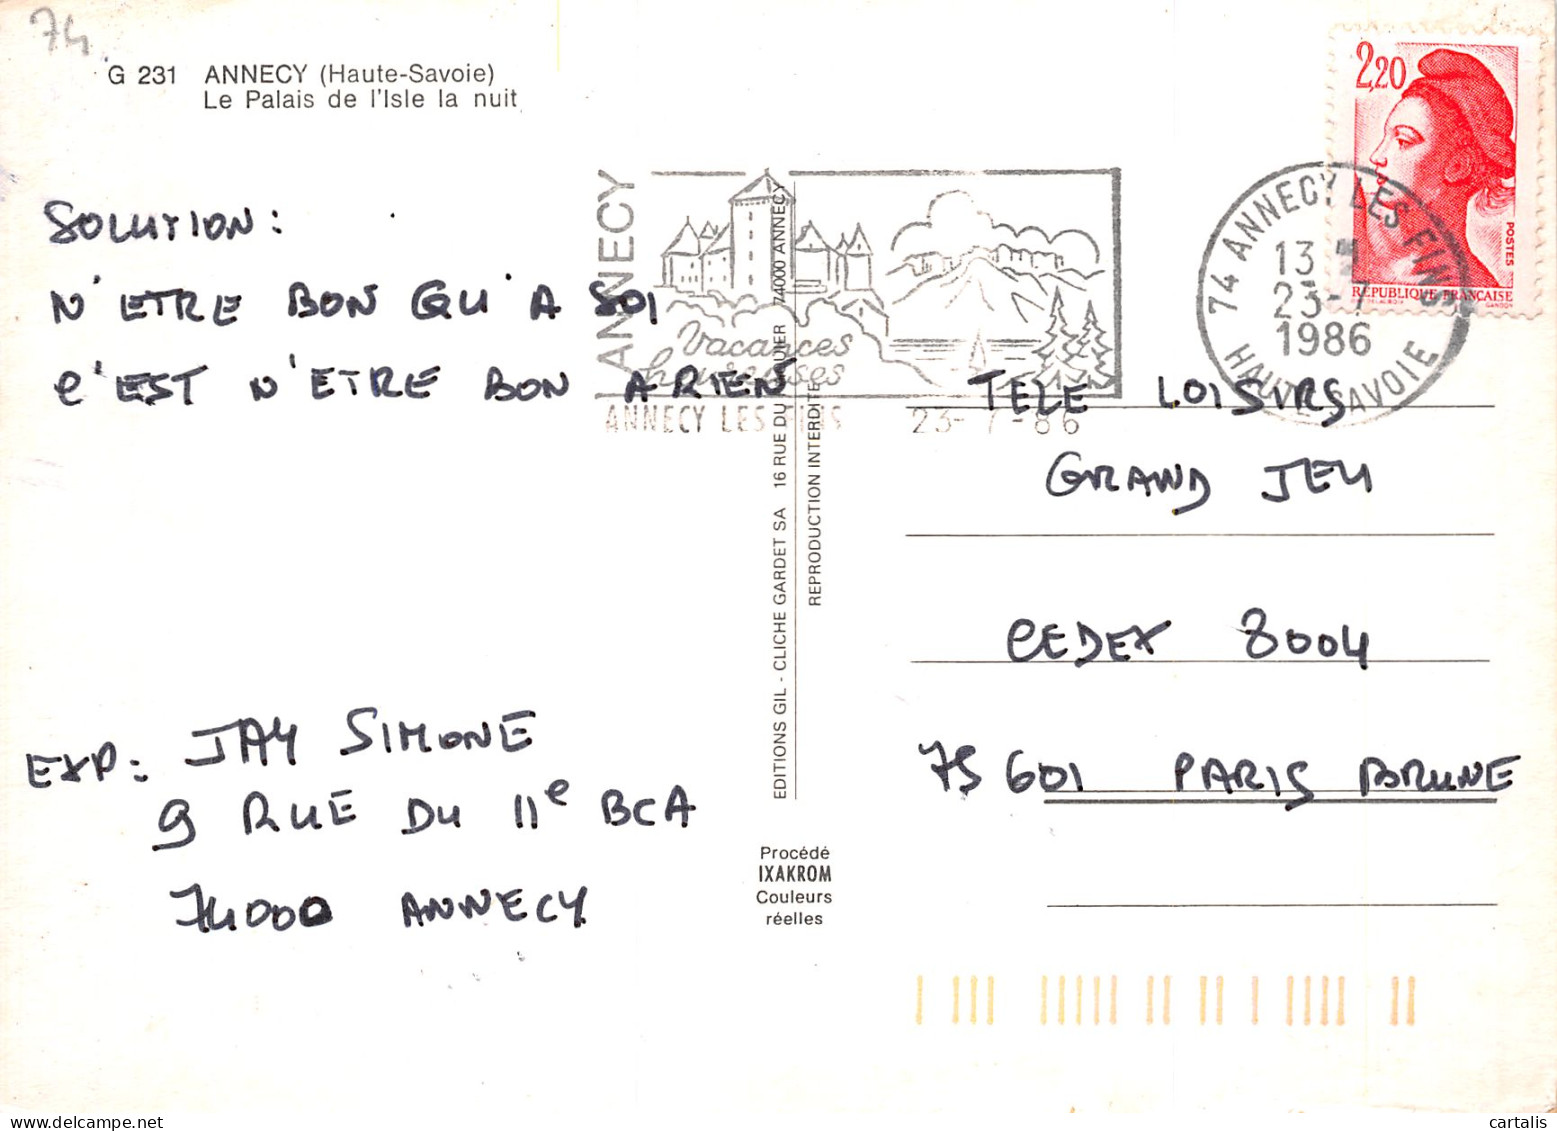 74
G 231 ANNECY (Haute-Savoie)
Le Palais de l'Isle la nuit
2,20
POSTES
RÉPUBLIQUE FRANÇAISE
GANDON
74 ANNECY LES FINS
13
23-7
1986
HAUTE SAVOIE
ANNECY
Vacances
heureuses
ANNECY LES FINS 23-7-86
SOLUTION:
N'ETRE BON QU'A SOI
C'EST N'ETRE BON A RIEN
TELE LOISIRS
GRAND JEU
CEDEX 8004
75601 PARIS BRUNE
EXP: JAY SIMONE
9 RUE DU 11e BCA
74000 ANNECY
EDITIONS GIL - CLICHE GARDET SA 16 RUE DU 74000 ANNECY
REPRODUCTION INTERDITE
Procédé
IXAKROM
Couleurs
réelles
cartalis